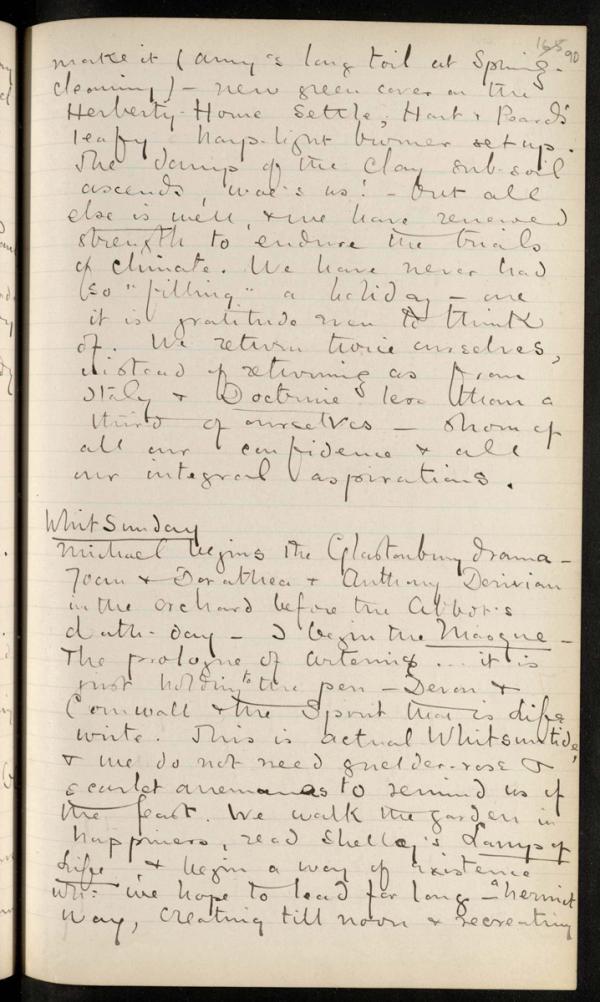 168 90
make it (Amy's long toil at Spring-
cleaning) – new green cover on the
Herbert-Home Settle, Hart & Peard's
leafy harp-light burner set up.
The damp of the clay sub-soil
ascends, woe's us! – but all
else is well, & we have renewed
strength to endure the trials
of climate. We have never had
so "filling" a holiday – one
it is gratitude even to think
of. We return twice ourselves,
instead of returning as from
Italy & Doctrine less than a
third of ourselves – shorn of
all our confidence & all
our integral aspirations.
Whit Sunday
Michael begins the Glastonbury drama –
Joan & Dorathea & Anthony Derivian
in the orchard before the Abbot's
death-day – I begin the Masque –
The prologue of Artemis ... it is
just holding to the pen – Devon &
Cornwall & the Spirit that is Life
write. This is actual Whitsuntide,
& we do not need guelder-rose &
scarlet anemones to remind us of
the feast. We walk the garden in
happiness, read Shelley's
Life, & begin a way of existence
wh: we hope to lead for long – a hermit
way, creating till noon & recreating